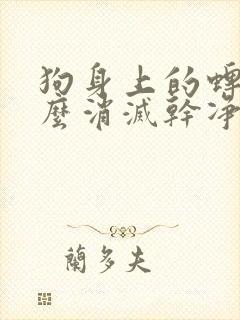 狗身上的蜱
麼消滅幹凈
蘭多夫